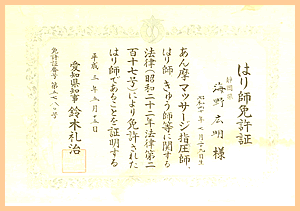 はり師免許証
静岡県
海野 広明 様
あん摩マッサージ指圧師、
はり師、きゅう師等に関する
法律(昭和二十二年法律第二
百十七号)により免許された
はり師であることを証明する
平成 三年 五月 五日
愛知県知事 鈴木礼治